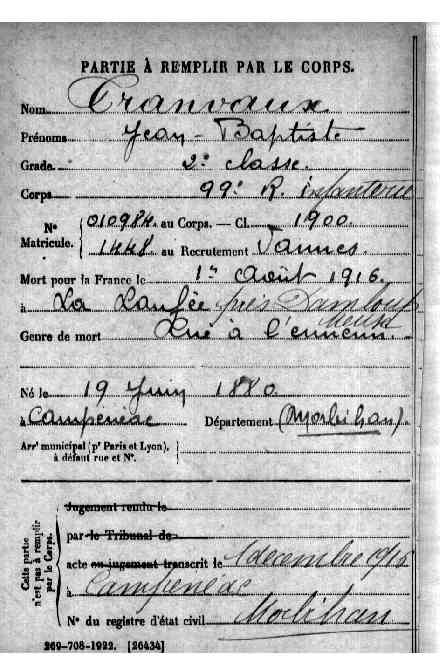 PARTIE À REMPLIR PAR LE CORPS.
Nom Tranvaux
Prénoms Jean-Baptiste
Grade 2e classe.
Corps 99e R. infanterie
Nº Matricule. 010984 au Corps. — Cl. 1900
1448 au Recrutement Vannes.
Mort pour la France le 1er Août 1916
à La Laufée près Damloup Meuse
Genre de mort Tué à l'ennemi.
Né le 19 Juin 1880
à Campénéac Département (Morbihan).
Arrt municipal (pr Paris et Lyon), à défaut rue et Nº.
Cette partie n'est pas à remplir par le Corps.
Jugement rendu le
par le Tribunal de
acte ou jugement transcrit le 1 décembre 1916
à Campénéac
Nº du registre d'état civil Morbihan
269-708-1922. [26434]